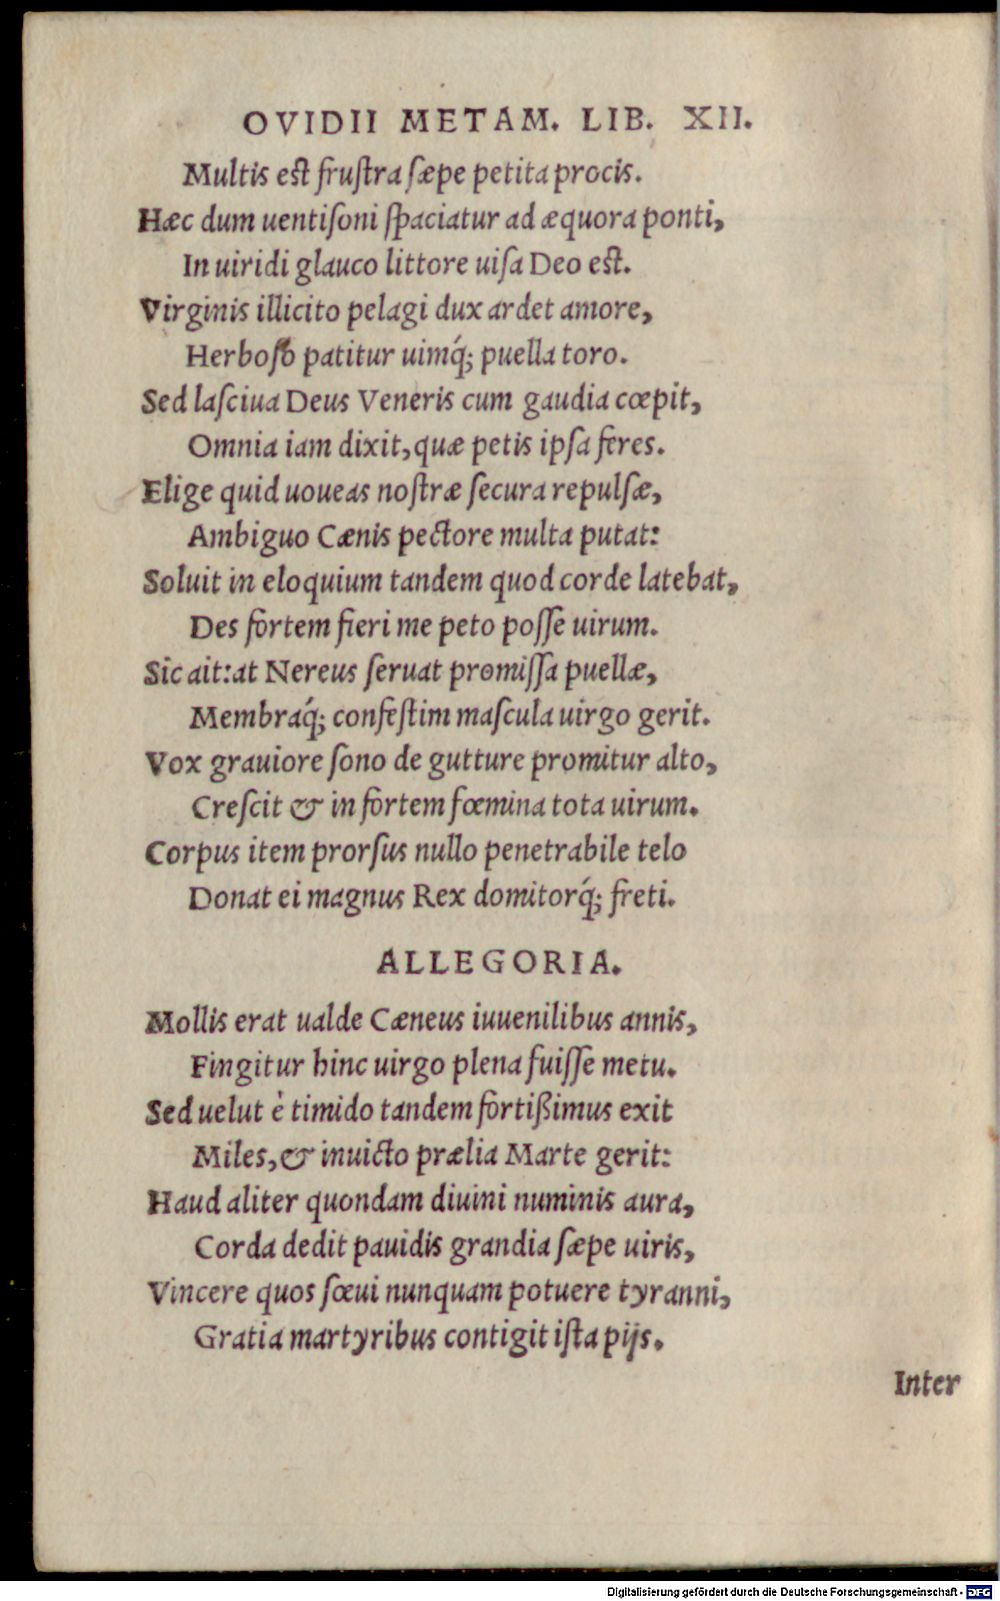 OVIDII METAM. LIB. XII.
Multis est frustra sæpe petita procis.
Hæc dum uentiſoni ſpaciatur ad æquora ponti,
In uiridi glauco littore uiſa Deo est.
Virginis illicito pelagi dux ardet amore,
Herboſo patitur uimq́; puella toro.
Sed laſciua Deus Veneris cum gaudia cœpit,
Omnia iam dixit, quæ petis ipſa feres.
Elige quid uoueas noſtræ ſecura repulſæ,
Ambiguo Cænis pectore multa putat:
Soluit in eloquium tandem quod corde latebat,
Des fortem fieri me peto poſſe uirum.
Sic ait: at Nereus ſeruat promiſſa puellæ,
Membraq́; confeſtim maſcula uirgo gerit.
Vox grauiore ſono de gutture promitur alto,
Creſcit & in fortem fœmina tota uirum.
Corpus item prorſus nullo penetrabile telo
Donat ei magnus Rex domitorq́; freti.
ALLEGORIA.
Mollis erat ualde Cæneus iuuenilibus annis,
Fingitur hinc uirgo plena fuiſſe metu.
Sed uelut è timido tandem fortißimus exit
Miles, & inuicto prælia Marte gerit:
Haud aliter quondam diuini numinis aura,
Corda dedit pauidis grandia ſæpe uiris,
Vincere quos ſœui nunquam potuere tyranni,
Gratia martyribus contigit iſta pijs.
Inter
Digitalisierung gefördert durch die Deutsche Forschungsgemeinschaft - DFG